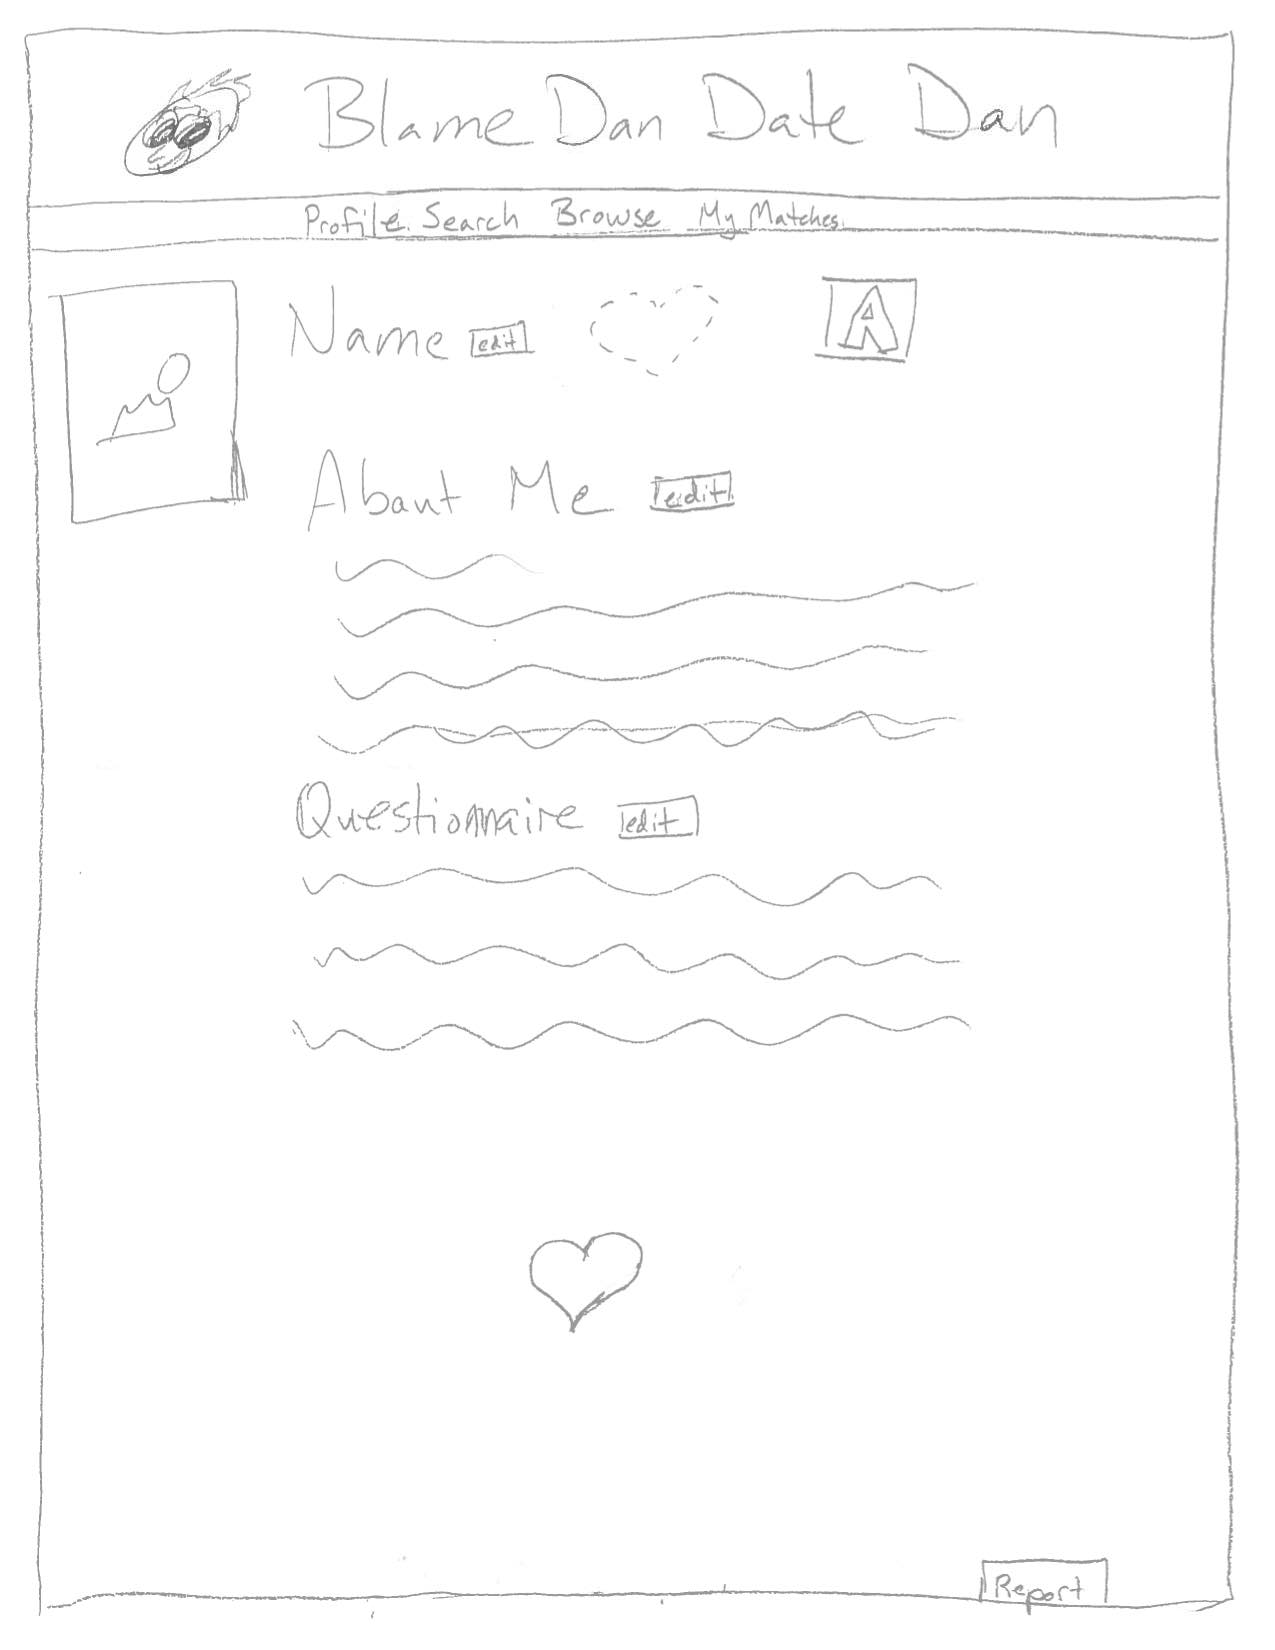 Blame Dan Date Dan
Profile Search Browse My Matches
Name edit A
About Me edit
Questionnaire edit
Report